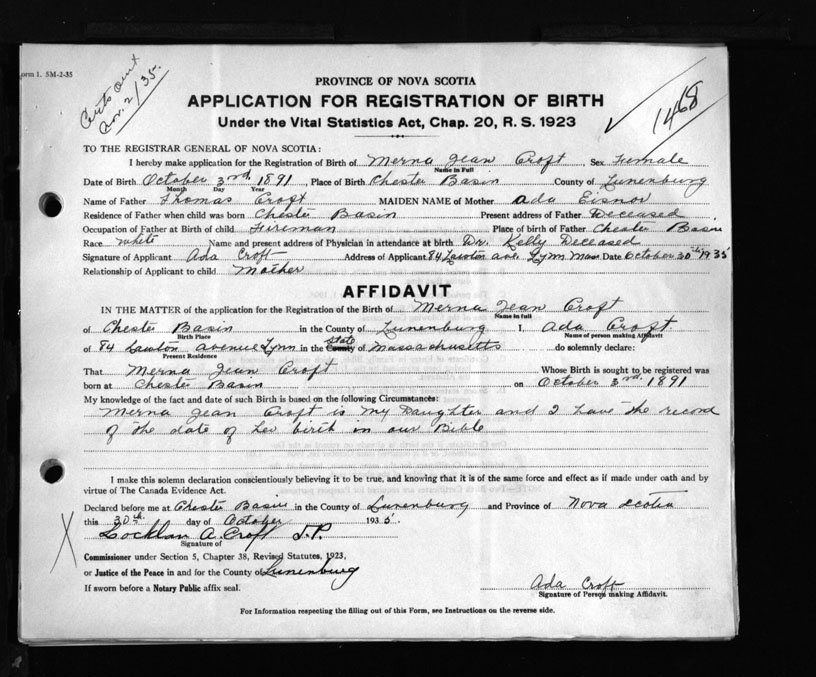 orm 1. 5M-2-35
Certs sent
Nov. 2/35.
1468
PROVINCE OF NOVA SCOTIA
APPLICATION FOR REGISTRATION OF BIRTH
Under the Vital Statistics Act, Chap. 20, R. S. 1923
TO THE REGISTRAR GENERAL OF NOVA SCOTIA:
I hereby make application for the Registration of Birth of Merna Jean Croft, Sex Female
Name in Full
Date of Birth October 3rd 1891, Place of Birth Chester Basin County of Lunenburg
Month Day Year
Name of Father Thomas Croft MAIDEN NAME of Mother Ada Eisnor
Residence of Father when child was born Chester Basin Present address of Father Deceased
Occupation of Father at Birth of child Fireman Place of birth of Father Chester Basin
Race White Name and present address of Physician in attendance at birth Dr. Kelly Deceased
Signature of Applicant Ada Croft Address of Applicant 84 Lawton ave Lynn Mass Date October 30th 1935
Relationship of Applicant to child Mother
AFFIDAVIT
IN THE MATTER of the application for the Registration of the Birth of Merna Jean Croft
Name in full
of Chester Basin in the County of Lunenburg I, Ada Croft
Birth Place Name of person making Affidavit
of 84 Lawton avenue Lynn in the State County of Massachusetts do solemnly declare:
Present Residence
That Merna Jean Croft Whose Birth is sought to be registered was
born at Chester Basin on October 3rd. 1891
My knowledge of the fact and date of such Birth is based on the following Circumstances:
Merna Jean Croft is my Daughter and I have the record
of the date of her birth in our Bible
I make this solemn declaration conscientiously believing it to be true, and knowing that it is of the same force and effect as if made under oath and by
virtue of The Canada Evidence Act.
Declared before me at Chester Basin in the County of Lunenburg and Province of Nova Scotia
this 30th day of October 1935.
Locklan A. Croft J.P.
Signature of
Commissioner under Section 5, Chapter 38, Revised Statutes, 1923,
or Justice of the Peace in and for the County of Lunenburg
If sworn before a Notary Public affix seal.
Ada Croft
Signature of Person making Affidavit.
For Information respecting the filling out of this Form, see Instructions on the reverse side.